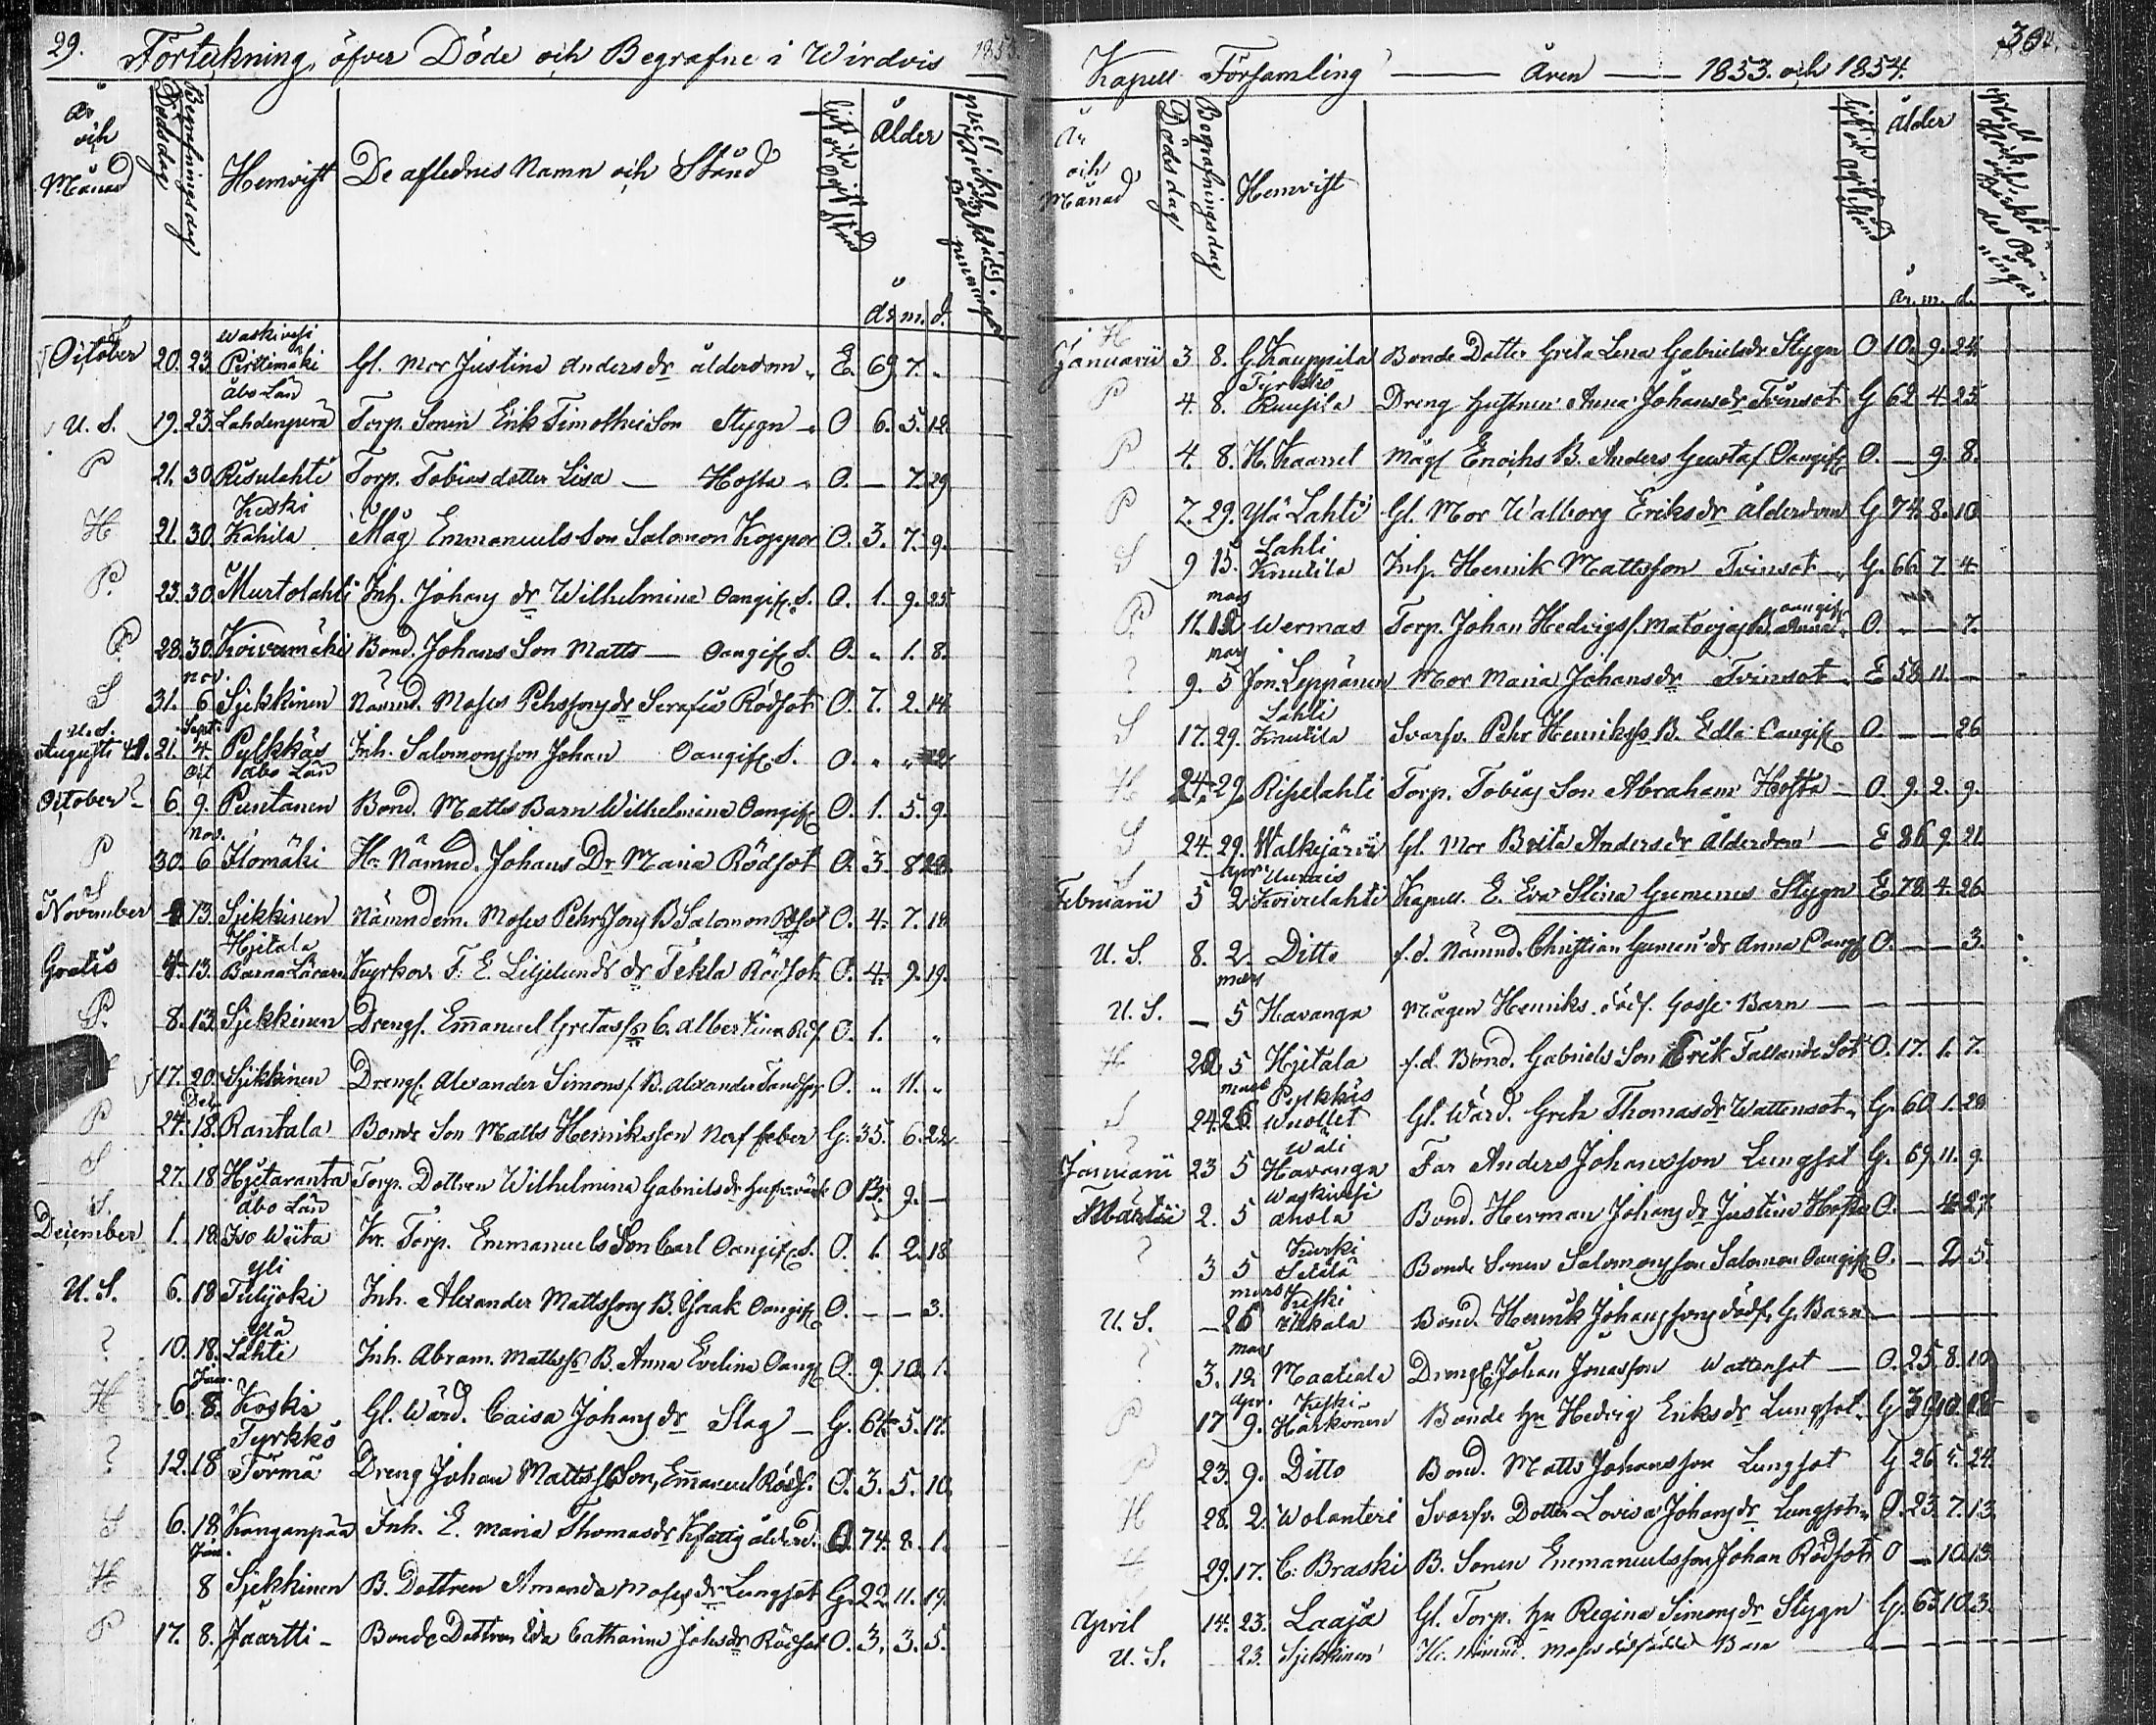 29.
Förteckning öfver Döde och Begrafne i Wirdois 1853.
År och Månad Dödsdag Begrafningsdag Hemvist De aflednes Namn och Stånd Gift och Ogift Stånd Ålder
år m. d.
October 20. 23. Waskivesi Pirttimäki Gl. Mor Justina Andersdr ålderdom E. 69 7. „
U. S. 19. 23. Åbo Län Lahdenperä Torp. Sonen Erik Timotheison Stygn O 6. 5. 12.
P 21. 30 Risulahti Torp. Tobias dotter Lisa — Hosta O. — 7. 29
H 21. 30. Keski Kahila Måg Emmanuels Son Salomon Koppor O. 3. 7. 9.
P. 23. 30. Murtolahti Inh. Johans dr Wilhelmina Oangif. S. O. 1. 9. 25.
P. 28. 30. Koivumäki Bond. Johans Son Matts — Oangif. S. O. „ 1. 8.
S 31. nov. 6 Sjekkinen Nämnd. Moses Pehrssons dr Serafia Rödsot O. 7. 2. 14.
U. S. Augusti 21. Sept. 4. Pylkkäs Inh. Salomonsson Johan Oangif. S. O. „ „
October 6. Oct 9. Åbo Län Puntanen Bond. Matts Barn Wilhelmina Oangif. O. 1. 5. 9.
P 30. nov. 6 Ilomäki Hr. Nämnd. Johans Dr Maria Rödsot O. 3. 8
S November 13. Sjekkinen Nämndem. Moses Pehrssons B. Salomon Rdsot O. 4. 7. 18
Gratis 13. Hjetala Kyrkov. F. E. Liljelunds dr Tekla Rödsot O. 4. 9. 19.
P. 8. 13. Sjekkinen Drengs. Emanuel Gretas O. 1. „
17. 20. Sjekkinen Drengs. Alexander Simons s. B. Alexander O. „ 11. „
P 27. Dec. 18. Rantala Bonde Son Matts Henriksson Nerffeber G. 35. 6. 22.
S 27. 18 Hjetaranta Torp. Dottren Wilhelmina Gabrielsdr O 9. —
S. December 1. 18. Åbo Län Iso Wiita Kr. Torp. Emmanuels Son Carl Oangif. S. O. 1. 2. 18
U. S. 6. 18 Yli Tulijoki Inh. Alexander Mattssons B. Isaak Oangif O. — — 3.
? 10. 18. Ylä Lahti Inh. Abram Mattss B. Anna Evelina Oang O. 9. 10. 1.
H 6. Jan. 8. Koski Gl. Wärd. Caisa Johansdr Slag — G. 64. 5. 17.
? 12. 18 Tyrkkö Törmä Dreng Johan Mattss Son, Emanuel Röds. O. 3. 5. 10.
S 6. 18 Kanganpää Inh. E. Maria Thomasdr 74. 8. 1.
H Jan. 8 Sjekkinen B. Dottren Amanda Mosesdr Lungsot G. 22. 11. 19.
P 17. 8. Jäärtti Bonde Dottren Ida Catharina Johsdr Rödsot O. 3. 3. 5.
30.
Kapell Församling — Åren — 1853. och 1854.
År och Månad Dödsdag Begrafningsdag Hemvist Gift och Ogift Stånd Ålder
år. m. d.
H Januarii 3 8. G. Kauppila Bonde Dotter Greta Lena Gabrielsdr Stygn O 10. 9. 24.
P 4. 8. Tyrkkö Ruusila Dreng Hustrun Anna Johansdr Tvinsot G 62 4. 25.
P 4. 8. Måg Enochs B. Anders Gustaf Oangif O. — 9. 8.
P 7. 29. Ylä Lahti Gl. Mor Walborg Eriksdr ålderdom G 74. 8. 10
S 9 15. Lahti Knutila Inh. Henrik Mattsson Tvinsot G. 66 7 4.
P. 11. mars 12 Wermas Torp. Johan Hedvigs s. oangif O. — 7.
? 9. mars 5 Jon. Leppänen Mor Maria Johansdr Tvinsot E 58. 11. —
S 17. 29. Lahti Knutila Svarfv. Pehr Henrikss B. Edla Oangif O. — — 26
H 24. 29. Risulahti Torp. Tobias Son Abraham Hosta — O. 9. 2. 9.
S 24. 29. Walkejärvi Gl. Mor Brita Andersdr Ålderdom — E 86 9. 21.
S Februarii 5 Apr 2 Unnais Koivulahti Kapell. E. Eva Stina Gumenus Stygn E 72. 4. 26
U. S. 8. 2. Ditto f. d. Nämnd. Christian Gumeri dr Anna Oangf O. — — 3.
U. S. — mars 5 Havanga Mågen Henriks dödf. Gosse Barn — — — —
H 5 Hjetala f. d. Bond. Gabriels Son Erik Fallande Sot O. 17. 1. 7.
S 24. mars 26 Pylkkäs Wuollet Gl. Wärd. Greta Thomasdr Wattensot G. 60 1. 28
? Januarii 23 5 Wäli Havanga Far Anders Johansson Lungsot G. 69 11. 9.
Martii 2. 5 Waskivesi Ahola Bond. Herman Johans dr Justina Hosta O. — 27
? 3 5 Kurki Setälä Bonde Sonen Salomonsson Salomon Oangif O. — 2 5.
U. S. — mars 26 Keski Bond. Henrik Johanssons dödf. G. Barn — — — —
? 3. mars 12 Maatiala Drengs Johan Jonasson Wattensot — O. 25. 8. 10
P 17 Apr. 9. Keski Härkönen Bonde Hu Hedvig Eriksdr Lungsot G
P 23. 9. Ditto Bond. Matts Johansson Lungsot G. 26 5. 24.
H 28. 2. Wolanteri Svarfv. Dotter Lovisa Johansdr Lungsot O. 23. 7. 13.
29. 17. C. Braski B. Sonen Emmanuelsson Johan Rödsot O — 10 13.
April 14. 23. Laaja Gl. Torp. Hu Regina Simonsdr Stygn G. 63 10 3.
U. S. 23. Sjekkinen Hr. Nämnd. Moses dödfödde Barn — — — —